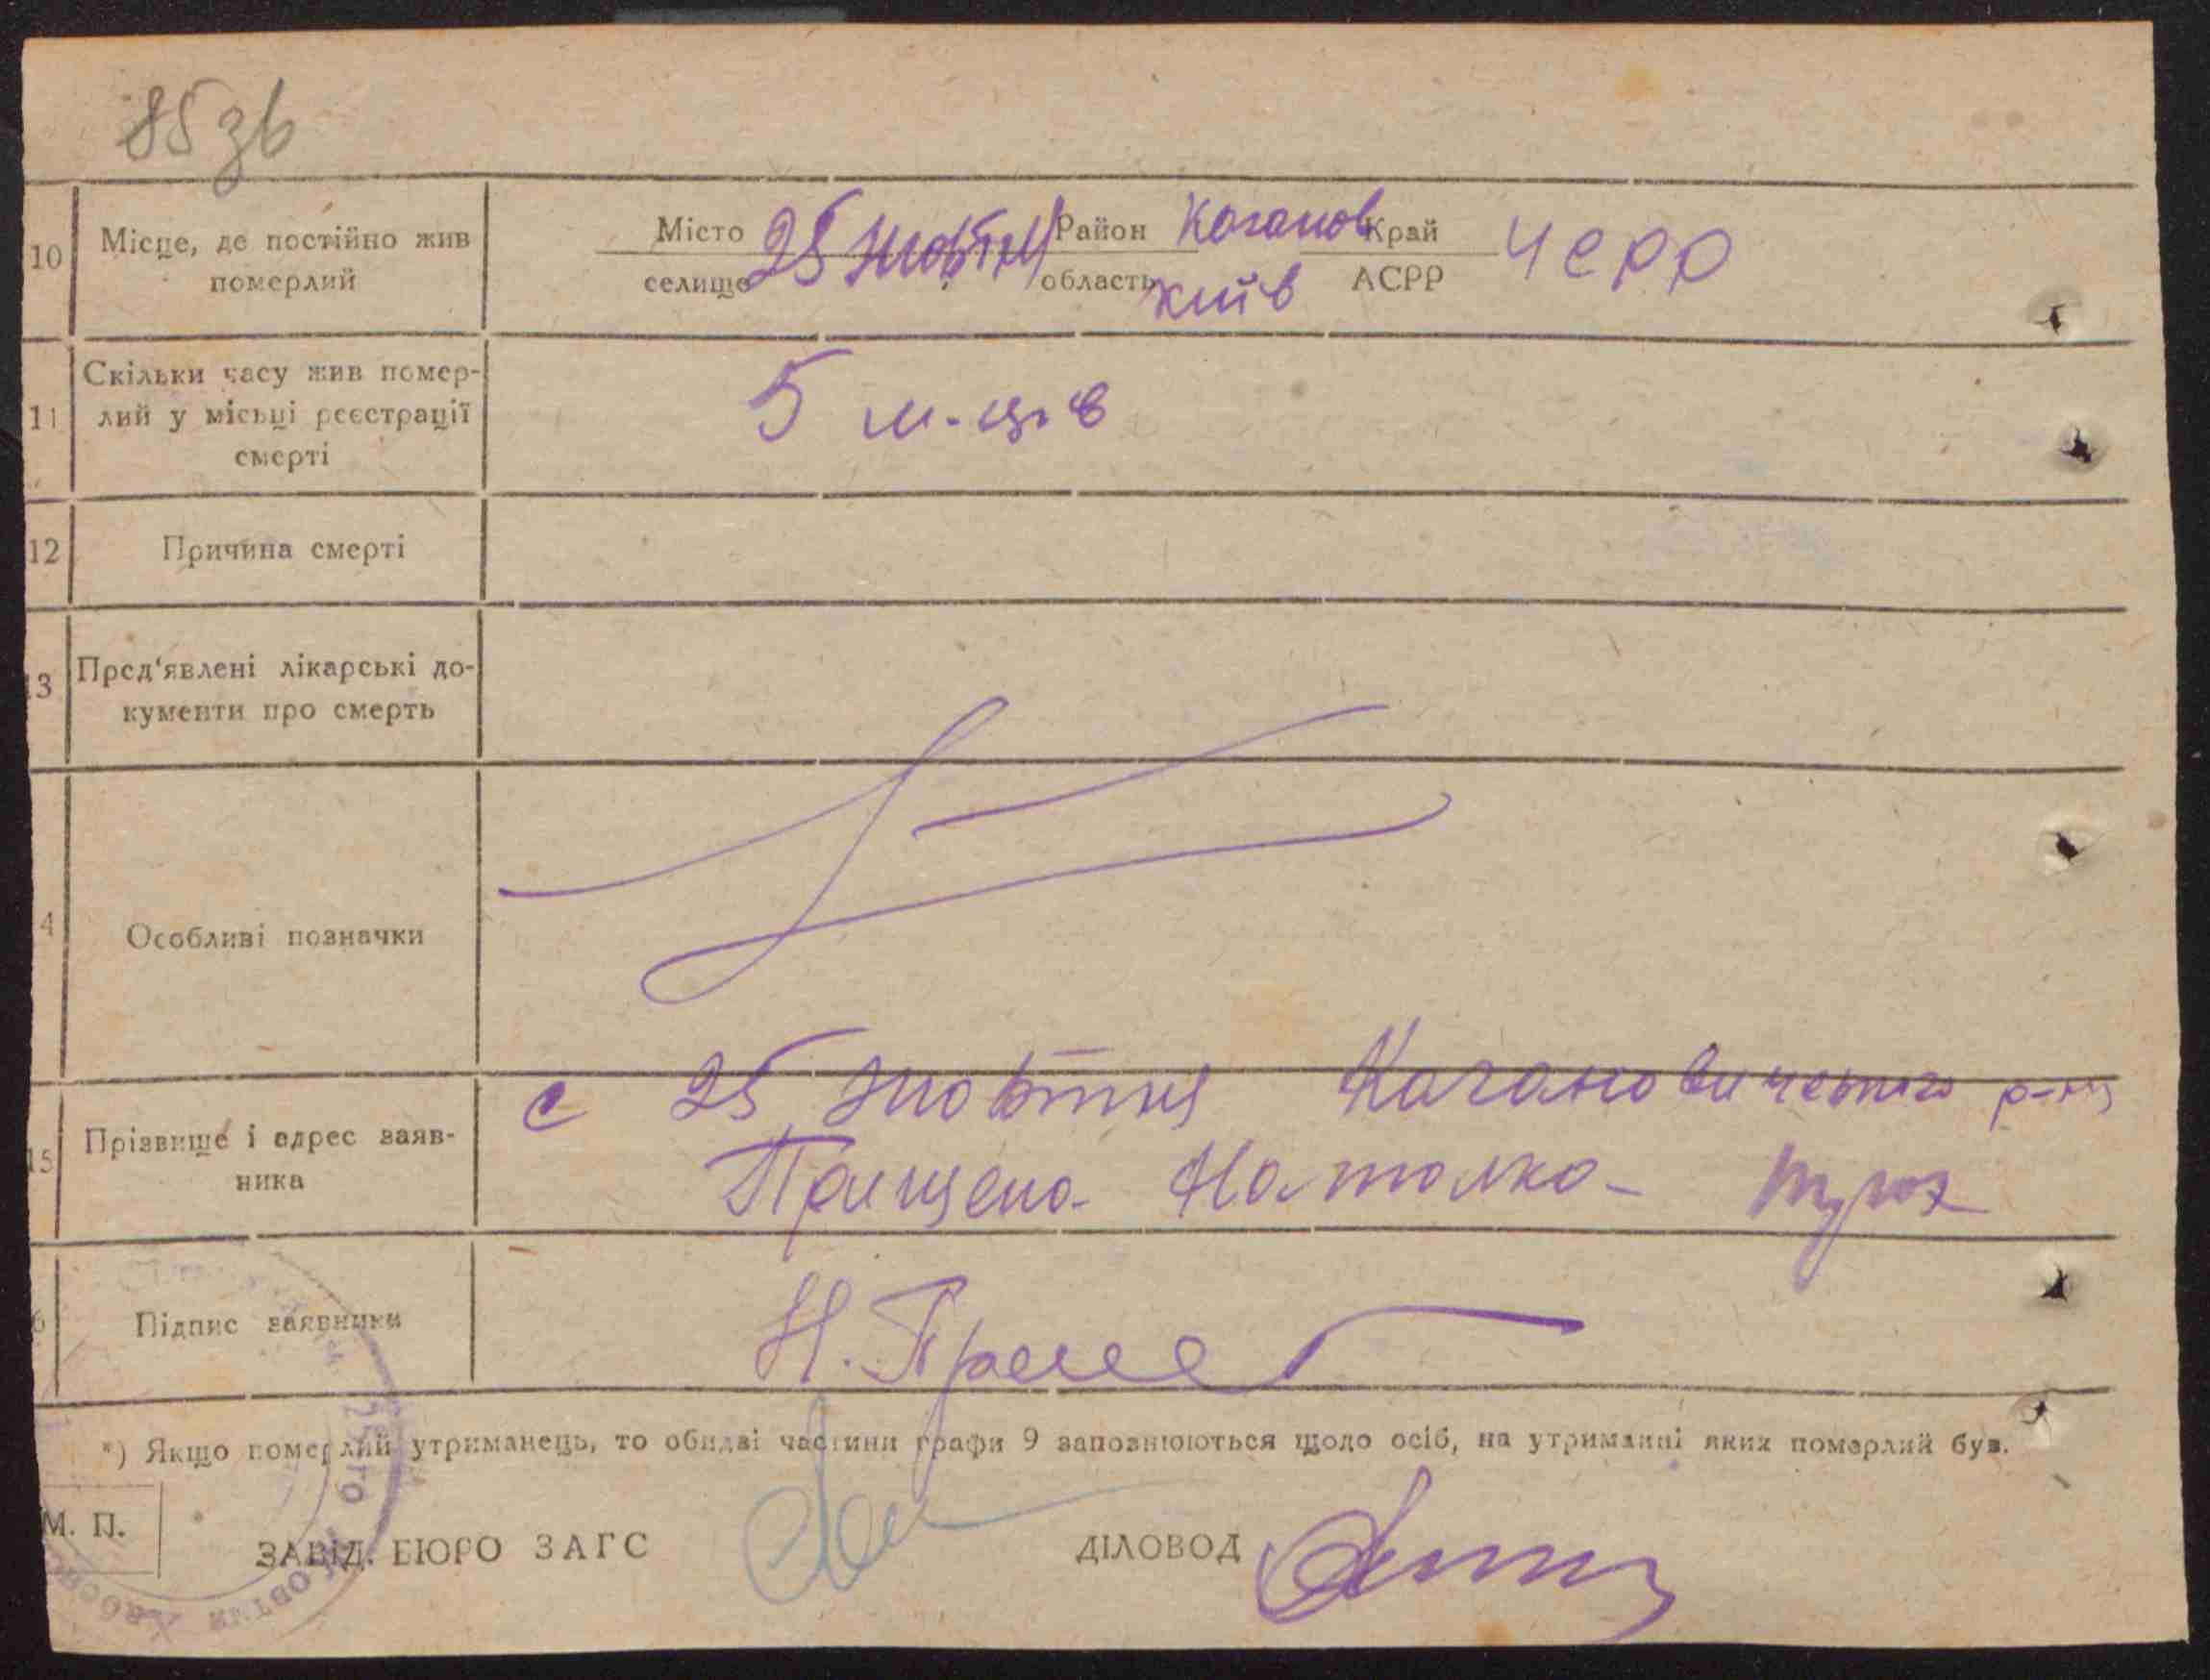 85 зв
10 Місце, де постійно жив померлий
Місто селище 25 жовтня Район Каганов область Київ Край АСРР УСРР
11 Скільки часу жив помер-
лий у місьці реєстрації
смерті
5 м-ців
12 Причина смерті
13 Пред'явлені лікарські до-
кументи про смерть
14 Особливі позначки
15 Прізвище і адрес заяв-
ника
с 25 жовтня Кагановичського р-ну
Прищепа Наталка
16 Підпис заявника
Н. Прище
*) Якщо померлий утриманець, то обидві частини графи 9 заповнюються щодо осіб, на утриманні яких померлий був.
М. П.
ЗАВІД. БЮРО ЗАГС
ДІЛОВОД